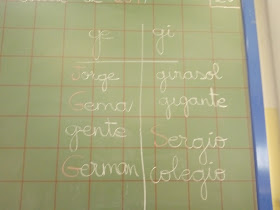 ge gi
Jorge girasol
Gema gigante
gente Sergio
German colegio